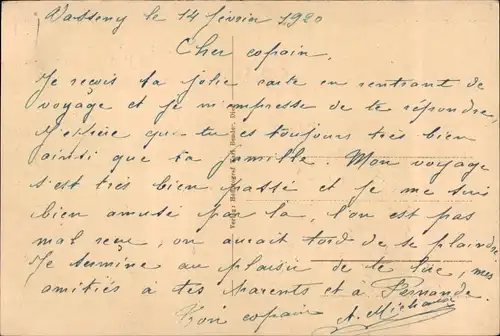 Vasseny le 14 février 1920
Cher copain,
Je reçois ta jolie carte en rentrant de
voyage et je m'empresse de te répondre,
J'espère que tu es toujours très bien
ainsi que ta famille. Mon voyage
s'est très bien passé et je me suis
bien amusé par la, l'on est pas
mal reçu, on aurait tord de se plaindre.
Je termine au plaisir de te lire, mes
amitiés à tes parents et a Fernande.
Ton copain A. Michaux
Verlag: